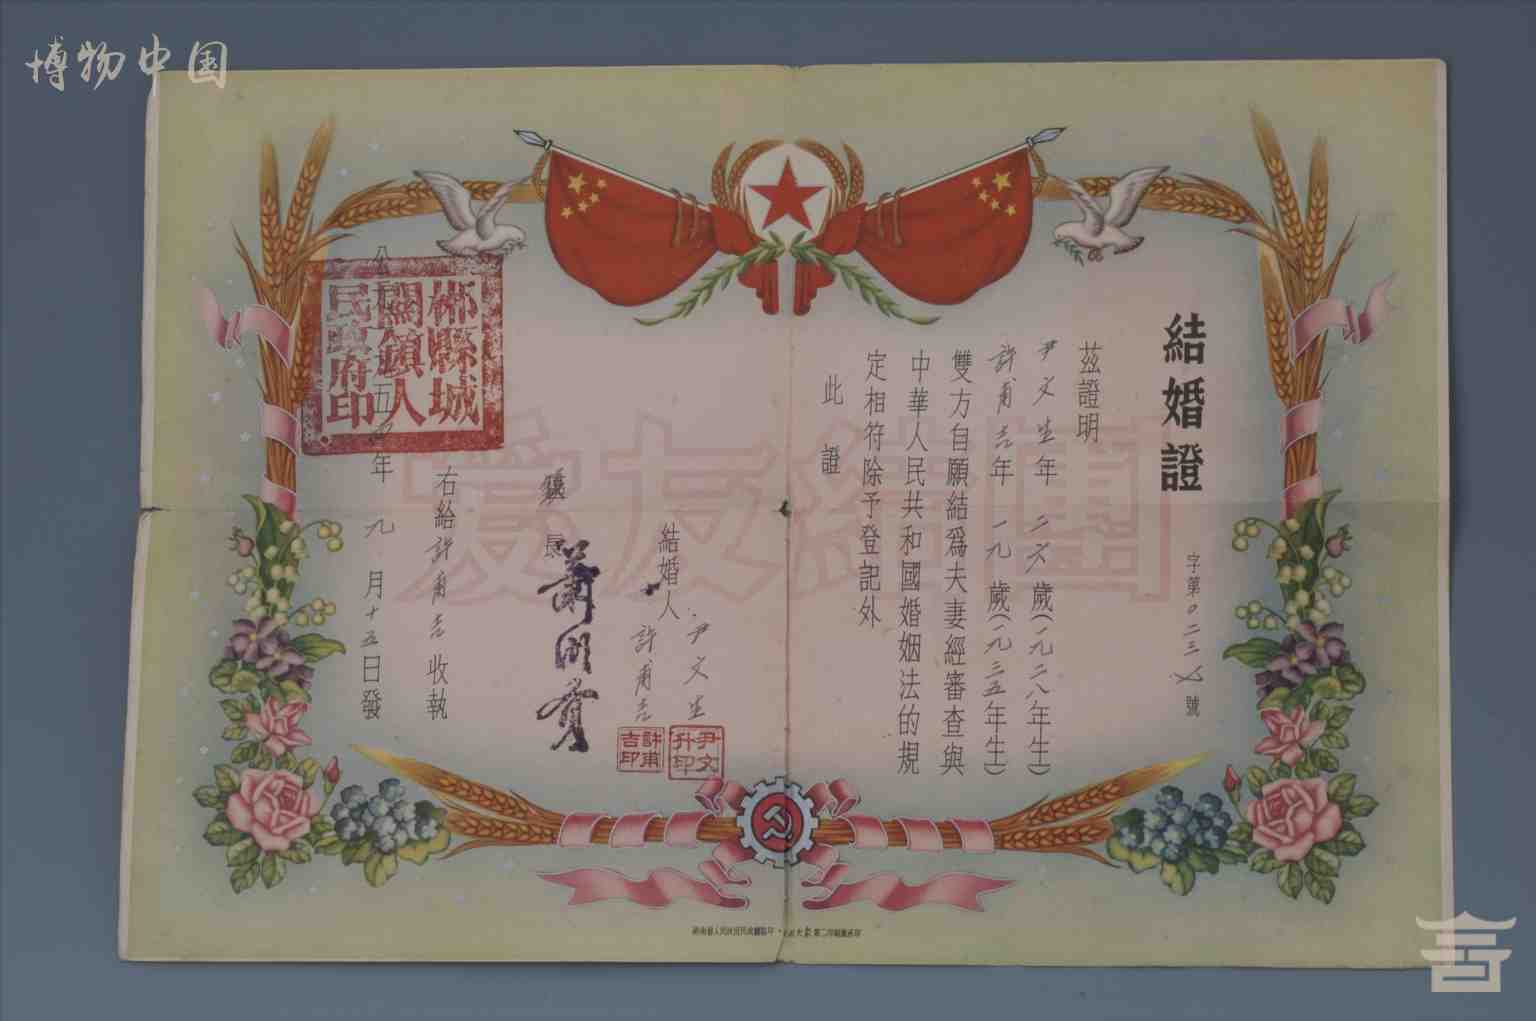 博物中国
結婚證
字第0二三乄號
茲證明
尹文生年 二六歲(一九二八年生)
許甫吉年 一九歲(一九三五年生)
雙方自願結爲夫妻經審查與
中華人民共和國婚姻法的規
定相符除予登記外
此證
結婚人 尹文生
許甫吉
尹文升印
許甫吉印
鎮長
右給許甫吉收執
公 五四年九月十五日發
郴縣城
關鎮人
民政府印
團結友愛